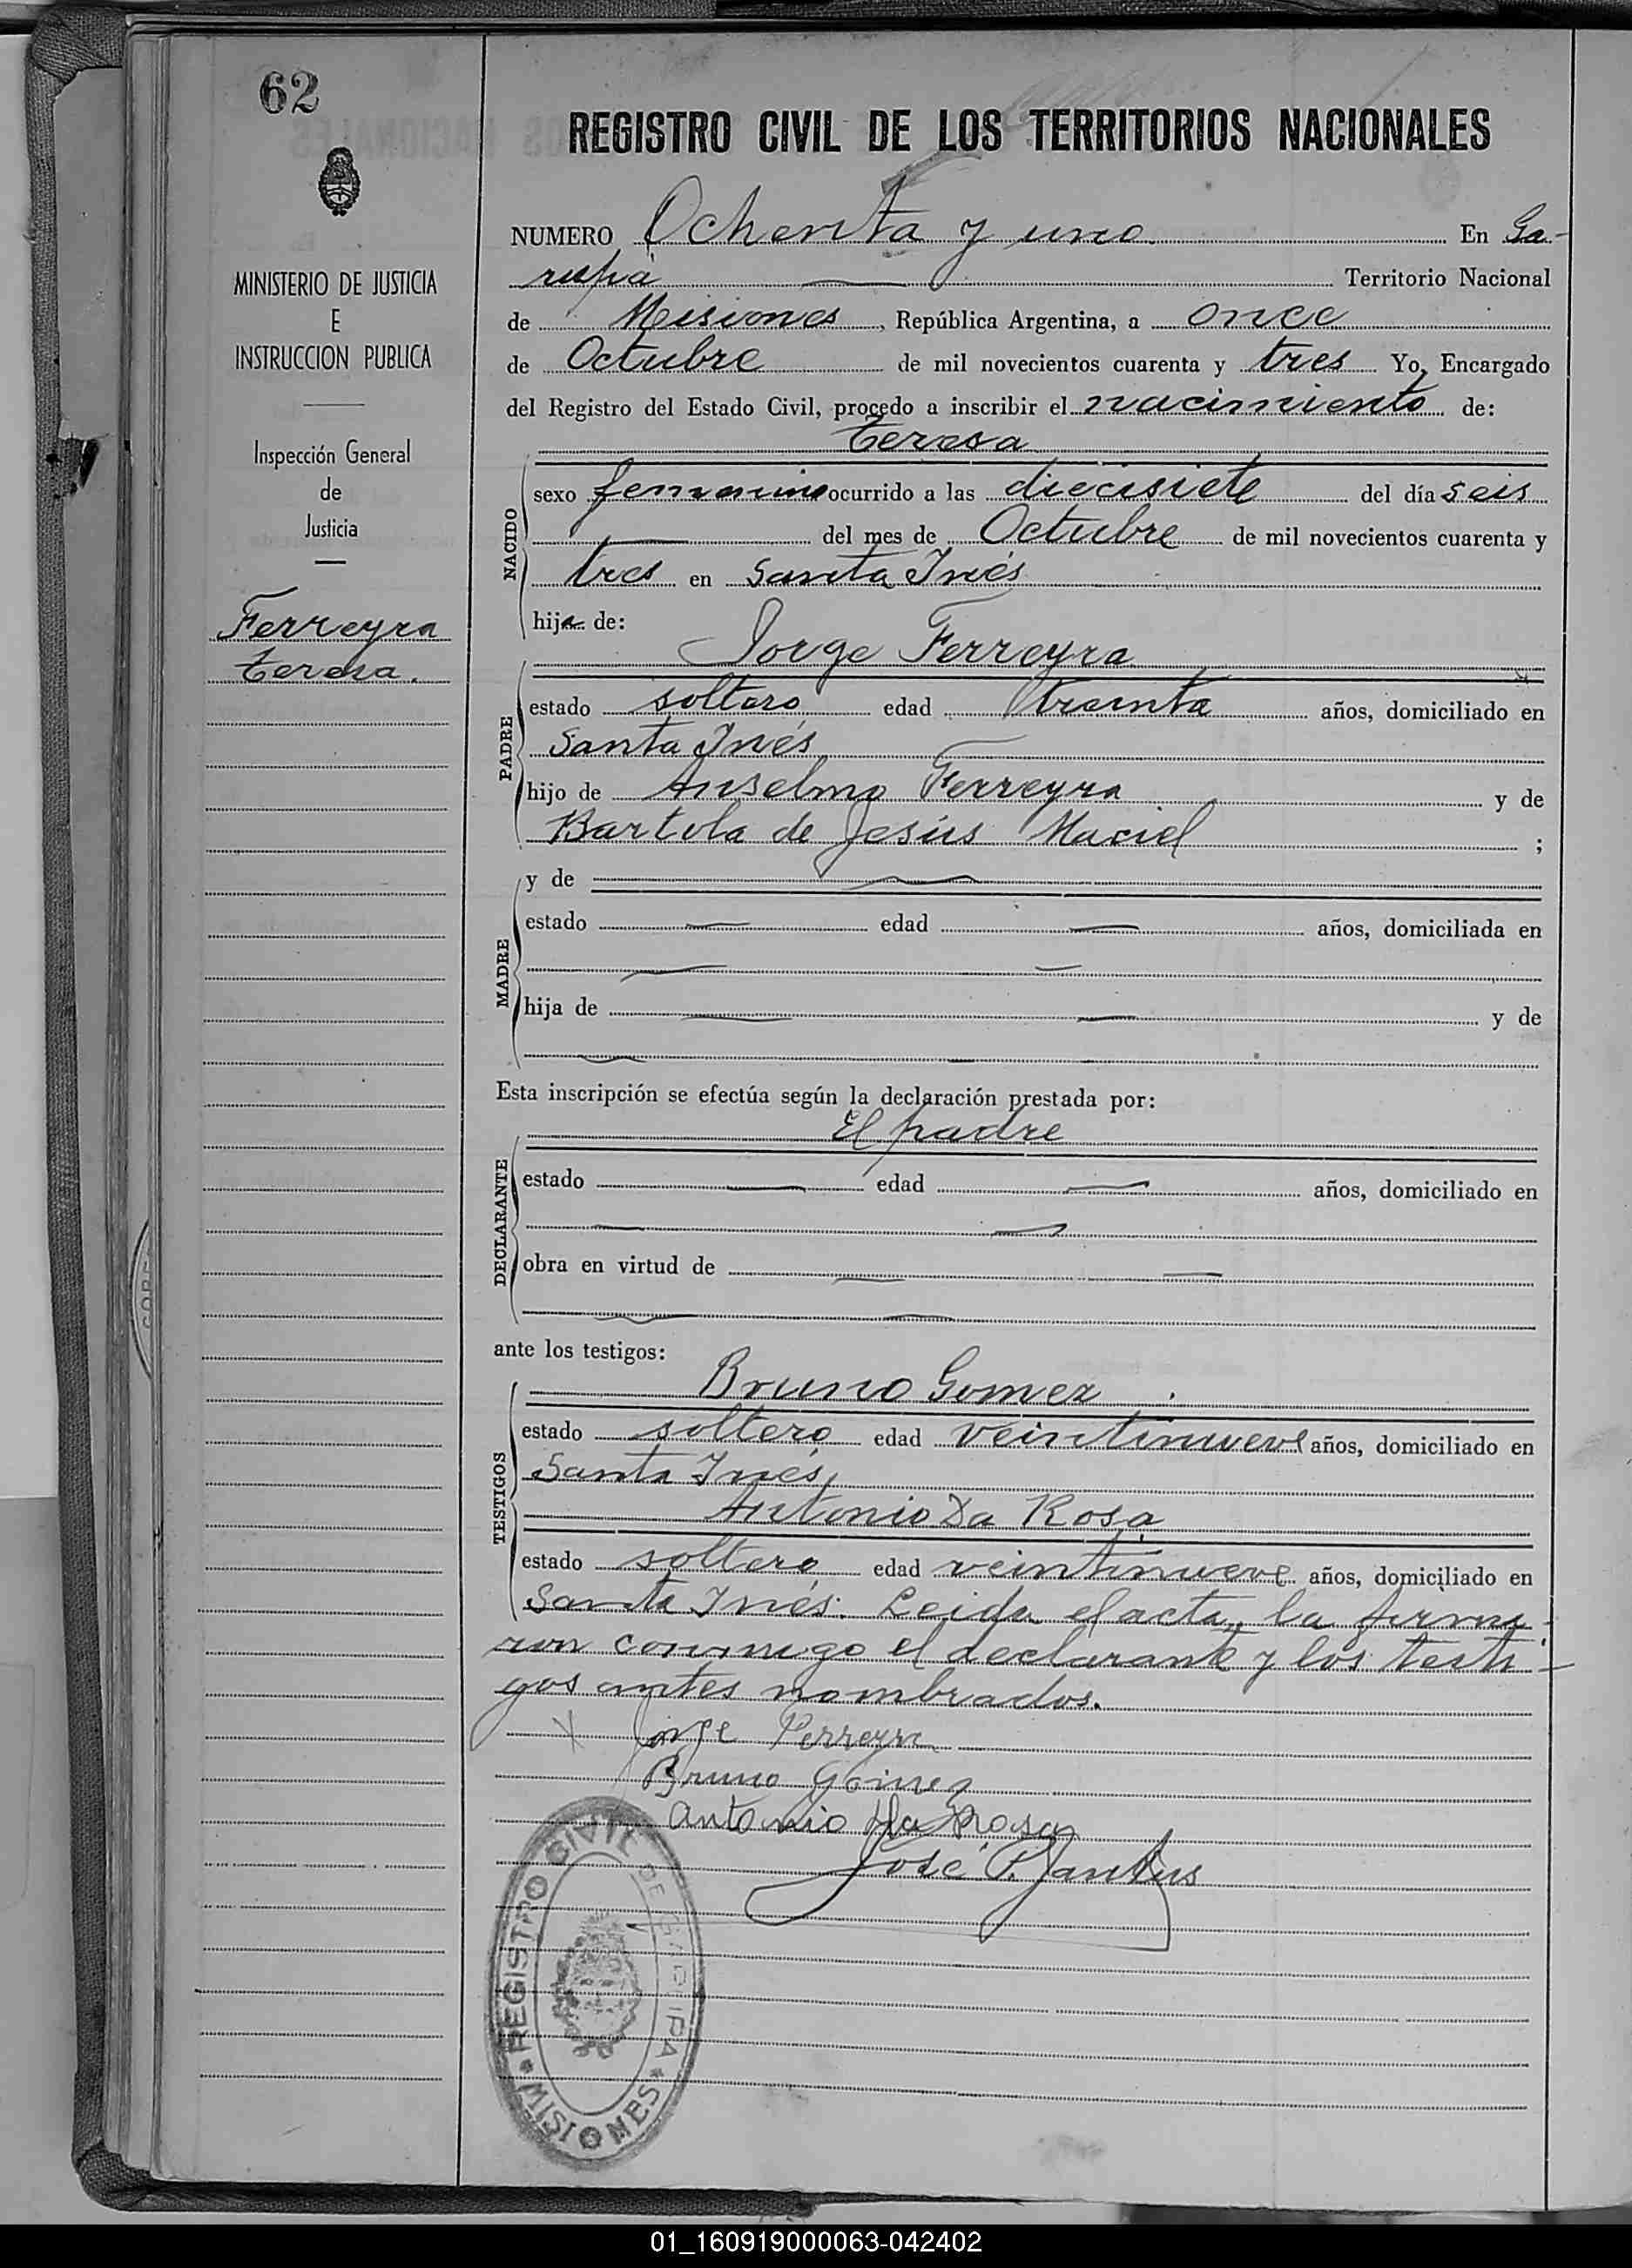 62
REGISTRO CIVIL DE LOS TERRITORIOS NACIONALES
MINISTERIO DE JUSTICIA
E
INSTRUCCION PUBLICA
Inspección General
de
Justicia
Ferreyra
Teresa.
NUMERO Ochenta y uno En Ga-
rupá Territorio Nacional
de Misiones, República Argentina, a once
de Octubre de mil novecientos cuarenta y tres Yo, Encargado
del Registro del Estado Civil, procedo a inscribir el nacimiento de:
Teresa
NACIDO
sexo femenino ocurrido a las diecisiete del día seis
del mes de Octubre de mil novecientos cuarenta y
tres en Santa Inés
hija de:
Jorge Ferreyra
PADRE
estado soltero edad treinta años, domiciliado en
Santa Inés
hijo de Anselmo Ferreyra y de
Bartola de Jesús Maciel ;
MADRE
y de
estado edad años, domiciliada en
hija de y de
Esta inscripción se efectúa según la declaración prestada por:
El padre
DECLARANTE
estado edad años, domiciliado en
obra en virtud de
ante los testigos:
Bruno Gomez
TESTIGOS
estado soltero edad veintinueve años, domiciliado en
Santa Inés,
Antonio Da Rosa
estado soltero edad veintinueve años, domiciliado en
Santa Inés. Leida el acta, la firma-
ron conmigo el declarante y los testi-
gos antes nombrados.
Jorge Ferreyra
Bruno Gomez
Antonio Da Rosa
José P.
REGISTRO CIVIL DE GARUPA
MISIONES
01_160919000063-042402